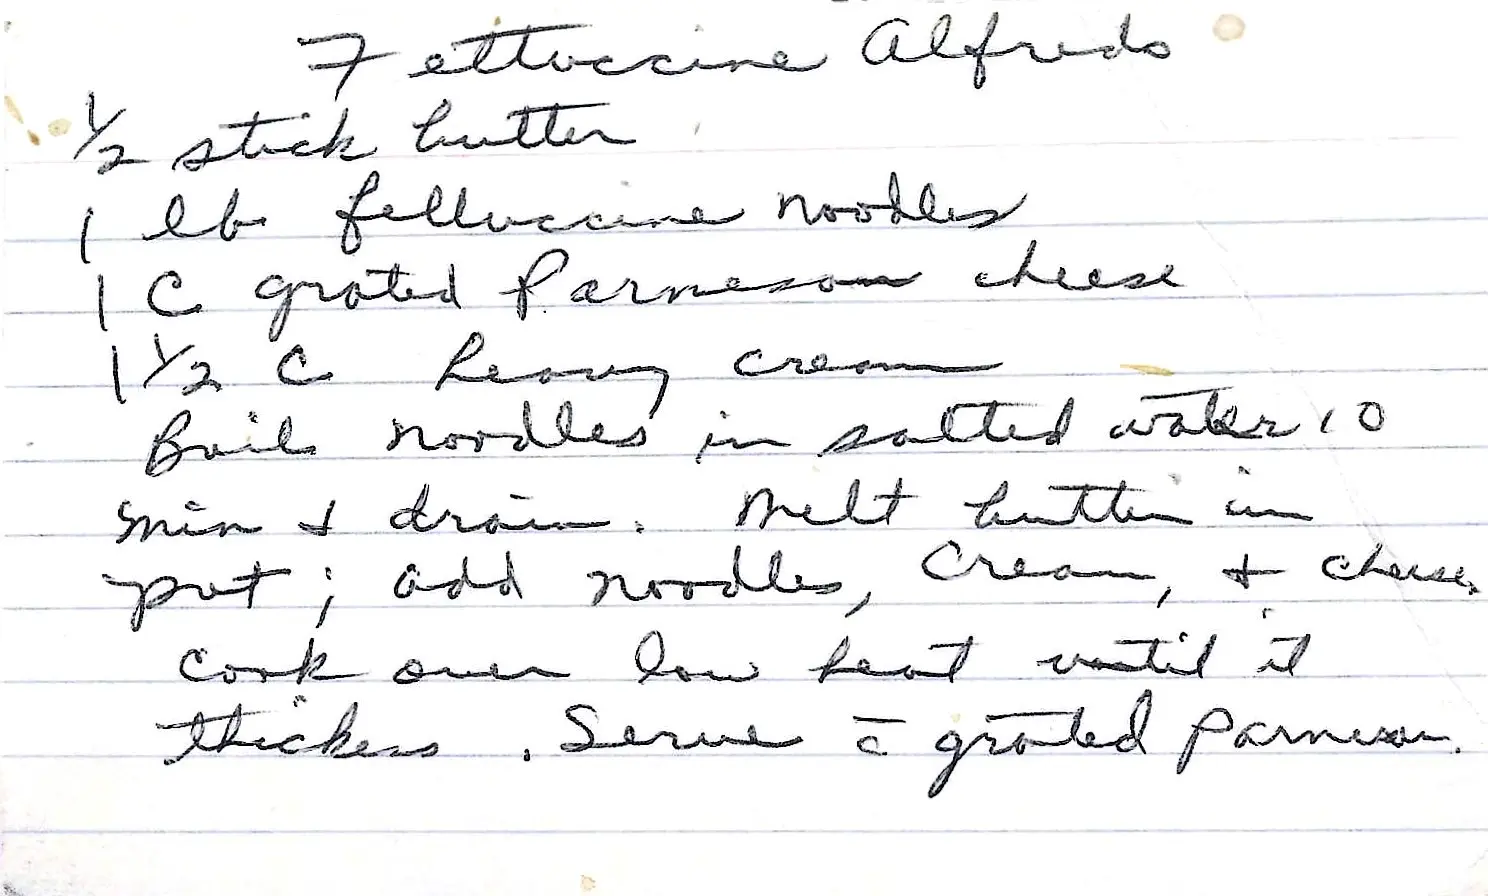 Fettuccine Alfredo
1/2 stick butter
1 lb fettuccine noodles
1 C grated Parmesan cheese
1 1/2 C heavy cream
Boil noodles in salted water 10
min & drain. Melt butter in
pot; add noodles, Cream, & cheese.
cook over low heat until it
thickens. Serve c̄ grated Parmesan.